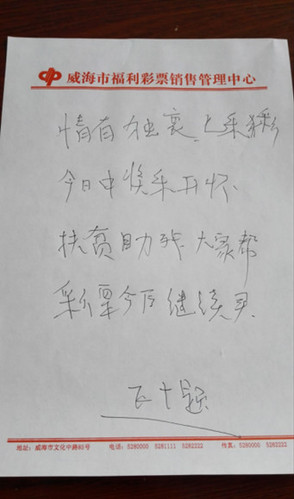 威海市福利彩票销售管理中心
情有独衷
今日中奖乐开怀
扶贫助残 大家帮
彩票今后继续买
地址：威海市文化中路82号 电话：5280000 5281111 5282222 传真：5282222